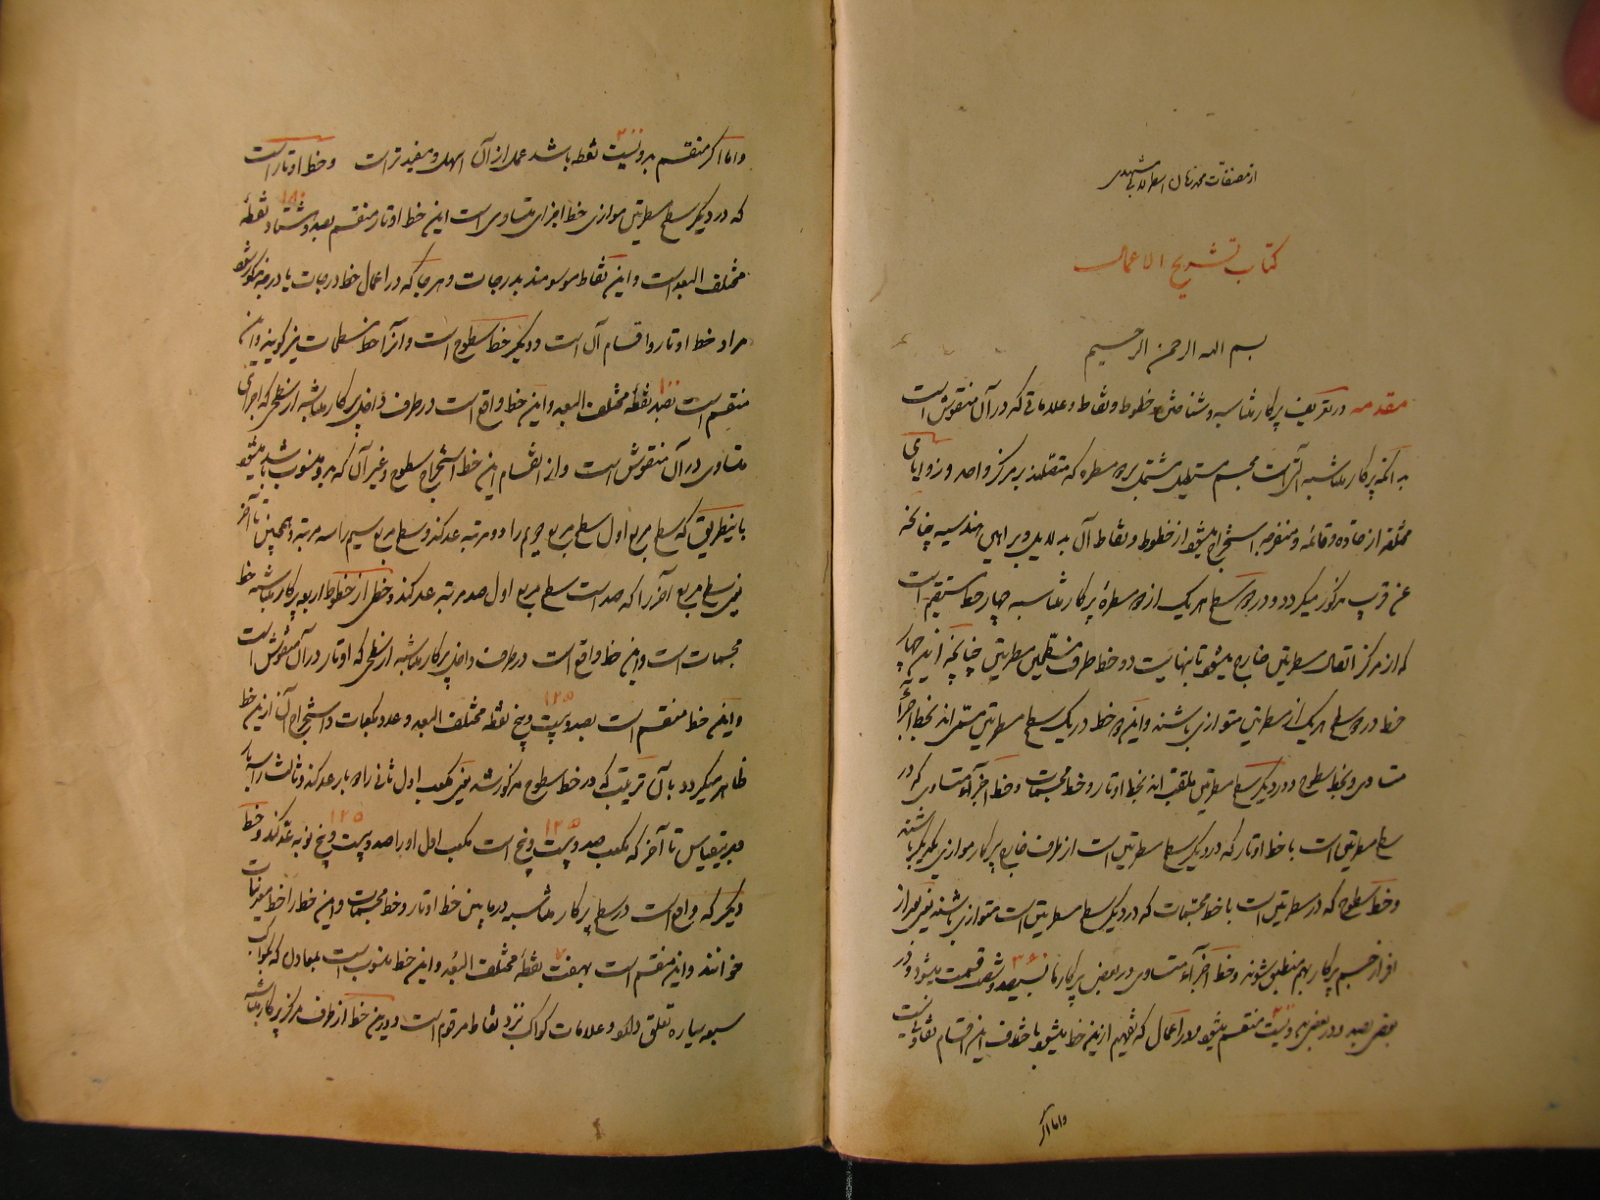 از مصنفات محمد زمان اسطرلابی مشهدی
کتاب تشریح الاعمال
بسم الله الرحمن الرحیم
مقدمه در تعریف پرکار متناسبه و شناختن خطوط و نقاط و علاماتی که در آن منقوش است
بدانکه پرکار متناسبه آلتی است مجسم مستطیل مشتمل بر دو مسطره که متصلند بر مرکز واحد و زوایای
مختلفه از حاده و قائمه و منفرجه استخراج میشود از خطوط و نقاط آن به دلایل و براهین هندسیه چنانکه
عن قریب مذکور میگردد و در دو سطح هر یک از دو مسطره پرکار متناسبه چهار خط مستقیم است
که از مرکز اتصال مسطرتین خارج میشود تا بنهایت دو خط طرف مسطرتین چنانچه این چهار
خط در دو سطح هر یک از مسطرتین متوازی باشند و این دو خط در یک سطح مسطرتین مسمی اند بخط اجزاء
متساوی و بخط سطوح و در دیگر سطح مسطرتین ملقب اند بخط اوتار و خط مجسمات و خط اجزاء متساوی که در
سطح مسطرتین است با خط اوتار که در دیگر سطح مسطرتین است از طرف خارج پرکار موازی یکدیگر باشند
و خط سطوح که در مسطرتین است با خط مجسمات که در دیگر سطح مسطرتین است متوازی باشند یعنی بعد از
افراز جسم پرکار بهم منطبق شوند و خط اجزاء متساوی در بعض پرکارها بسیصد و شصت ۳۶۰ قسمت میشود و در
بعضی بصد و در بعضی به دویست ۲۰۰ منقسم میشود و در اعمال که تفهیم ازین خط میشود باختلاف این اقسام تفاوت نیست
و اما اگر
و اما اگر منقسم بدویست ۲۰۰ نقطه باشد عمل از آن اسهل و مفیدتر است و خط اوتار است
که در دیگر سطح مسطرتین موازی خط اجزای متساوی است این خط اوتار منقسم بصد و هشتاد ۱۸۰ نقطه
مختلف البعد است و این نقاط موسومند بدرجات و هر جا که در اعمال خط درجات یا درجه مذکور شود
مراد خط اوتار و اقسام آن است و دیگر خط سطوح است و آنرا خط مسطحات نیز گویند و این
منقسم است بصد ۱۰۰ نقطه مختلف البعد و این خط واقع است در طرف داخل پرکار متناسبه از سطحی که اجزای
متساوی در آن منقوش است و از انقسام این خط استخراج سطوح و غیر آن که بدو منسوب باشد میشود
باینطریق که سطح مربع اول سطح مربع دویم را دو مرتبه عد کند و سطح مربع سیم را سه مرتبه و همچنین تا آخر
یعنی سطح مربع آخر را که صد است سطح مربع اول صد مرتبه عد کند و خطی از خطوط اربعه پرکار متناسبه خط
مجسمات است و این خط واقع است در طرف داخل پرکار متناسبه از سطحی که اوتار در آن منقوش است
و این خط منقسم است بصد و بیست و پنج ۱۲۵ نقطه مختلف البعد و عدد مکعبات و استخراج آن ازین خط
ظاهر میگردد بآن ترتیب که در خط سطوح مذکور شد یعنی مکعب اول ثانی را دو بار عد کند و ثالث را سه بار
و بدینقیاس تا آخر که مکعب صد و بیست و پنج ۱۲۵ است مکعب اول او را صد و بیست و پنج ۱۲۵ نوبه عد کند و خط
دیگر که واقع است در سطح پرکار متناسبه در مابین خط اوتار و خط مجسمات و این خط را خط معدنیات
خوانند و این منقسم است بهفت ۷ نقطه مختلف البعد و این خط منسوب است بمعادن که بکواکب
سبعه سیاره تعلق دارد و علامات کواکب نزد نقاط مرقوم است و درین خط از طرف مرکز پرکار متناسبه